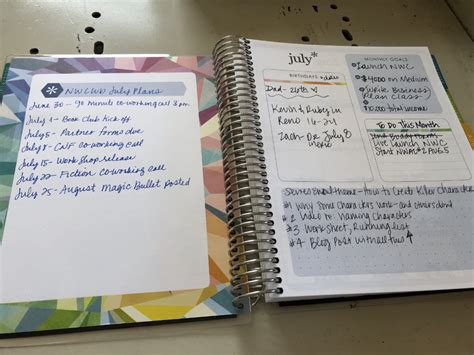 NWClub July Plans
June 30 - 90 minute co-working call 3pm
July 1 - Book Club Kick off
July 5 - Partner forms due
July 8 - CNF co-working call
July 15 - Workshop release
July 22 - Fiction co-working call
July 25 - August Magic Bullet posted
july*
BIRTHDAYS
Dad - 26th
Kevin & Ruby in
Reno 16-24
Zach - Dr July 8
MONTHLY GOALS
Launch NWC
$4000 on Medium
Write Business
Class
total income
To Do This Month
Live Launch NWC
Start
AUG 5
How to Create Killer Characters
#1 Why Some Characters work - and others dont
#2 Video re: Naming Characters
#3 Worksheet,
#4 Blog Post